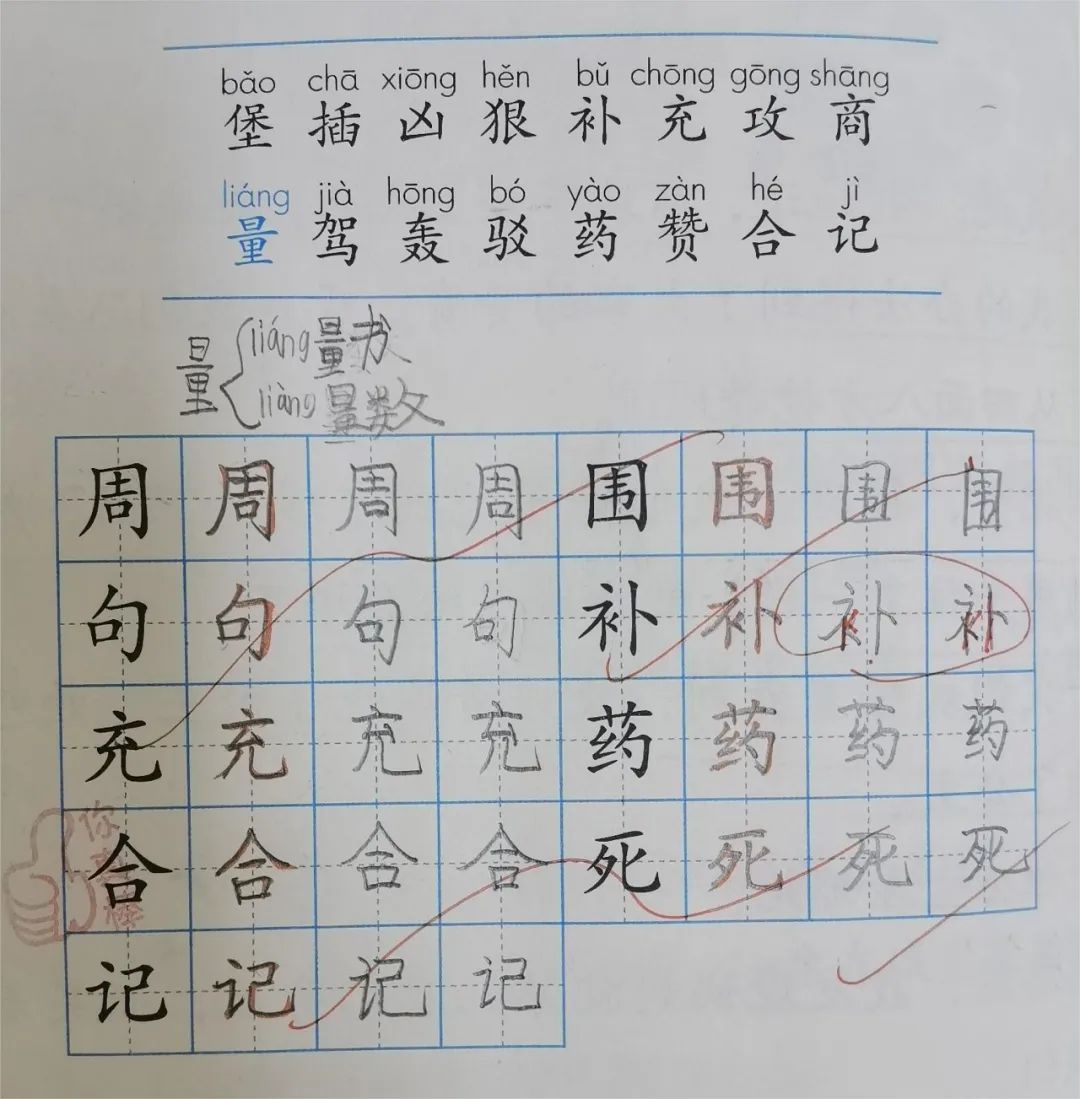 bǎo chā xiōng hěn bǔ chōng gōng shāng
堡 插 凶 狠 补 充 攻 商
liáng jià hōng bó yào zàn hé jì
量 驾 轰 驳 药 赞 合 记
liáng量书
量
liàng量数
周 周 周 周 围 围 围 围
句 句 句 句 补 补 补 补
充 充 充 充 药 药 药 药
合 合 合 合 死 死 死 死
你真棒
记 记 记 记